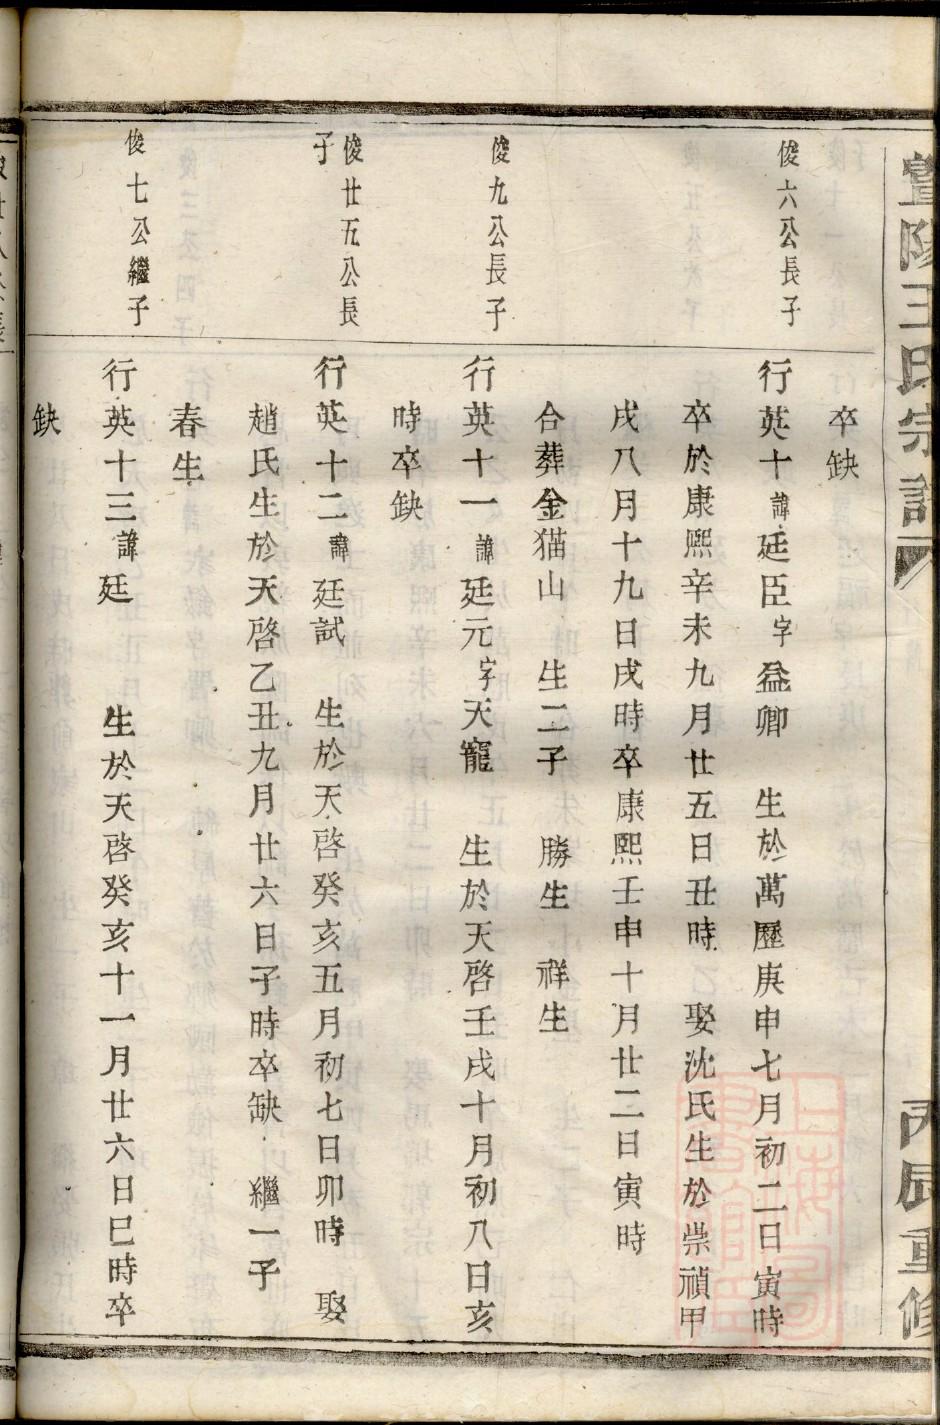 暨陽王氏宗譜
丙辰重修
卒缺
俊六公長子
行英十諱廷臣字益卿 生於萬歷庚申七月初二日寅時
卒於康熙辛未九月廿五日丑時 娶沈氏生於崇禎甲
戌八月十九日戌時卒康熙壬申十月廿二日寅時
合葬金猫山 生二子 勝生 祥生
俊九公長子
行英十一諱廷元字天寵 生於天啓壬戌十月初八日亥
時卒缺
俊廿五公長
子
行英十二諱廷試 生於天啓癸亥五月初七日卯時 娶
趙氏生於天啓乙丑九月廿六日子時卒缺 繼一子
春生
俊七公繼子
行英十三諱廷 生於天啓癸亥十一月廿六日巳時卒
缺